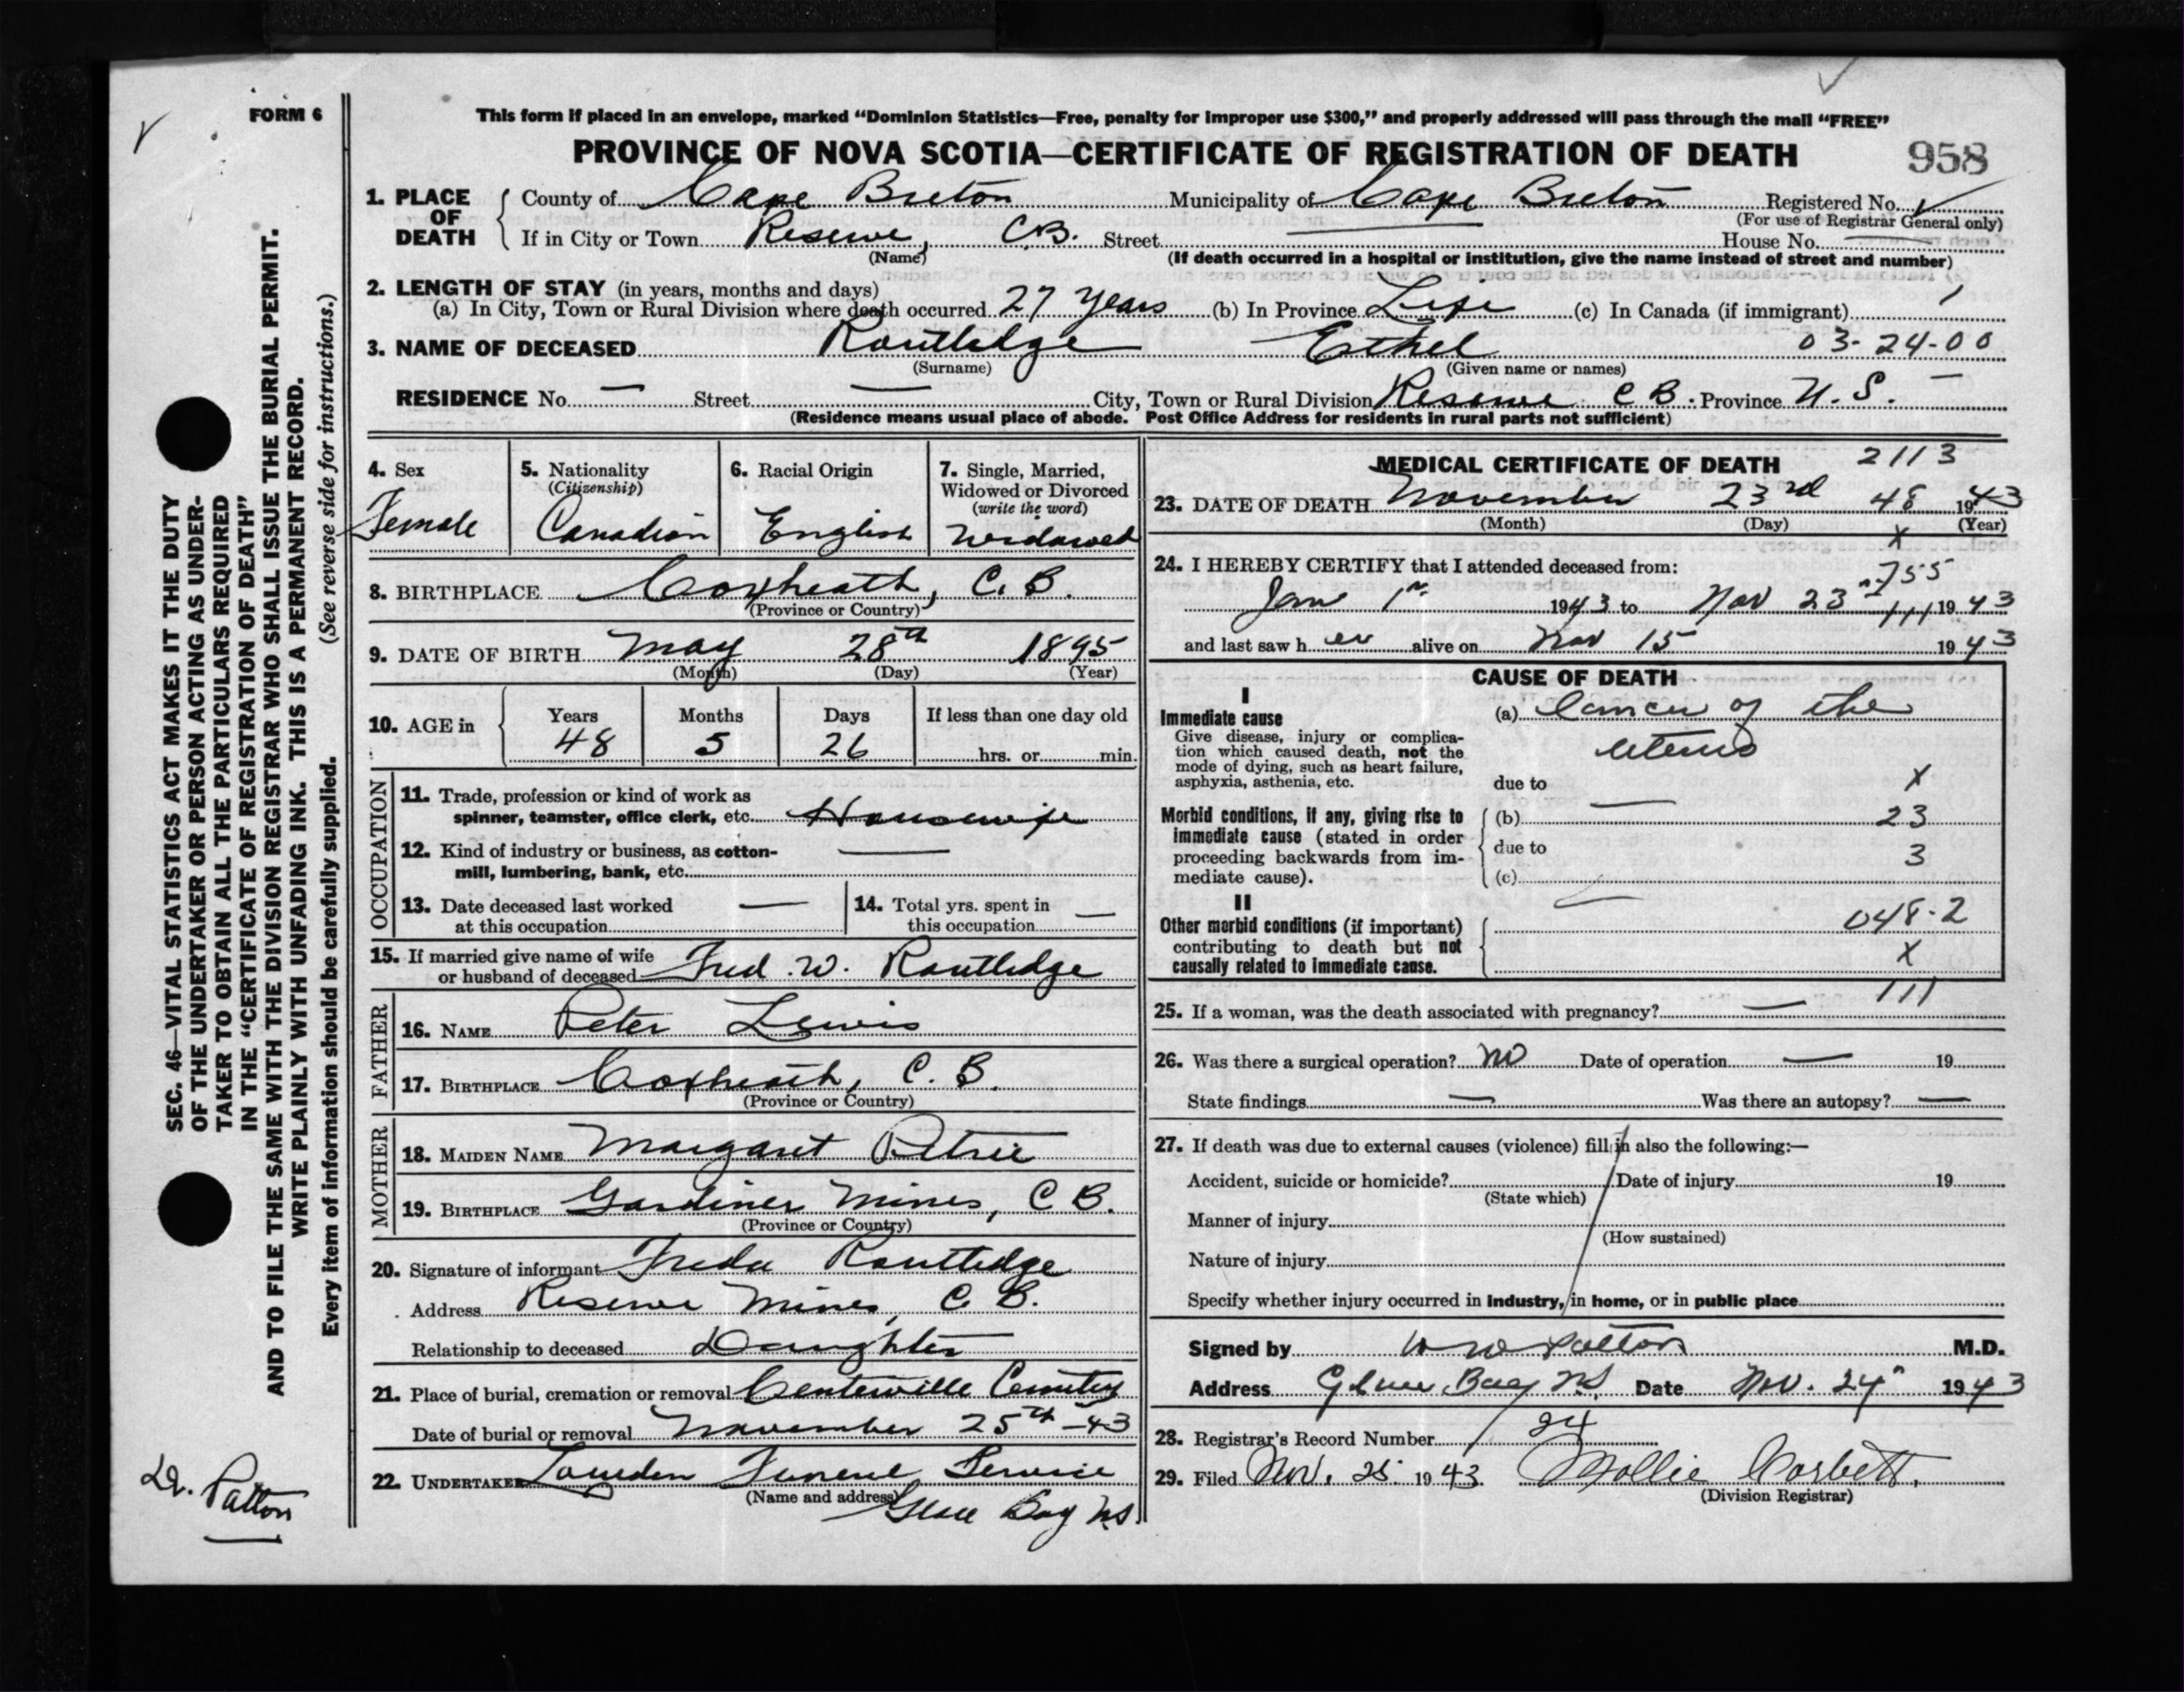 FORM 6
This form if placed in an envelope, marked “Dominion Statistics—Free, penalty for improper use $300,” and properly addressed will pass through the mail “FREE”
PROVINCE OF NOVA SCOTIA—CERTIFICATE OF REGISTRATION OF DEATH
958
1. PLACE OF DEATH
County of Cape Breton Municipality of Cape Breton Registered No.
(For use of Registrar General only)
If in City or Town Reserve, C.B. Street House No.
(Name)
(If death occurred in a hospital or institution, give the name instead of street and number)
2. LENGTH OF STAY (in years, months and days)
(a) In City, Town or Rural Division where death occurred 27 years (b) In Province Life (c) In Canada (if immigrant)
3. NAME OF DECEASED Routledge Ethel 03-24-00
(Surname) (Given name or names)
RESIDENCE No. — Street — City, Town or Rural Division Reserve C B. Province N. S.
(Residence means usual place of abode. Post Office Address for residents in rural parts not sufficient)
4. Sex
Female
5. Nationality
(Citizenship)
Canadian
6. Racial Origin
English
7. Single, Married,
Widowed or Divorced
(write the word)
Widowed
8. BIRTHPLACE Coxheath, C. B.
(Province or Country)
9. DATE OF BIRTH May 28th 1895
(Month) (Day) (Year)
10. AGE in
Years Months Days If less than one day old
48 5 26 hrs. or min.
OCCUPATION
11. Trade, profession or kind of work as
spinner, teamster, office clerk, etc. Housewife
12. Kind of industry or business, as cotton-
mill, lumbering, bank, etc. —
13. Date deceased last worked
at this occupation —
14. Total yrs. spent in
this occupation —
15. If married give name of wife
or husband of deceased Fred. W. Routledge
FATHER
16. NAME Peter Lewis
17. BIRTHPLACE Coxheath, C. B.
(Province or Country)
MOTHER
18. MAIDEN NAME Margaret Petrie
19. BIRTHPLACE Gardiner Mines, C B.
(Province or Country)
20. Signature of informant Freda Routledge
Address Reserve Mines, C. B.
Relationship to deceased Daughter
21. Place of burial, cremation or removal Centerville Cemetery
Date of burial or removal November 25th -43
22. UNDERTAKER Funeral Service
(Name and address)
Glace Bay N.S.
MEDICAL CERTIFICATE OF DEATH 2113
23. DATE OF DEATH November 23rd 48 1943
(Month) (Day) (Year)
X
24. I HEREBY CERTIFY that I attended deceased from:
755
Jan 1st 1943 to Nov 23rd 1943
111
and last saw her alive on Nov 15 1943
CAUSE OF DEATH
I
Immediate cause
Give disease, injury or complica-
tion which caused death, not the
mode of dying, such as heart failure,
asphyxia, asthenia, etc.
(a) Cancer of the
uterus
due to
X
Morbid conditions, if any, giving rise to
immediate cause (stated in order
proceeding backwards from im-
mediate cause).
(b) — 23
due to 3
(c)
II
Other morbid conditions (if important)
contributing to death but not
causally related to immediate cause.
048.2
X
111
25. If a woman, was the death associated with pregnancy? —
26. Was there a surgical operation? No Date of operation — 19
State findings — Was there an autopsy? —
27. If death was due to external causes (violence) fill in also the following:—
Accident, suicide or homicide? Date of injury 19
(State which)
Manner of injury
(How sustained)
Nature of injury
Specify whether injury occurred in industry, in home, or in public place
Signed by W W Patton M.D.
Address Glace Bay NS Date Nov. 24" 1943
28. Registrar's Record Number 24
29. Filed Nov. 25. 1943 Mollie Corbett,
(Division Registrar)
SEC. 46—VITAL STATISTICS ACT MAKES IT THE DUTY
OF THE UNDERTAKER OR PERSON ACTING AS UNDER-
TAKER TO OBTAIN ALL THE PARTICULARS REQUIRED
IN THE “CERTIFICATE OF REGISTRATION OF DEATH”
AND TO FILE THE SAME WITH THE DIVISION REGISTRAR WHO SHALL ISSUE THE BURIAL PERMIT.
WRITE PLAINLY WITH UNFADING INK. THIS IS A PERMANENT RECORD.
Every item of information should be carefully supplied. (See reverse side for instructions.)
Dr. Patton